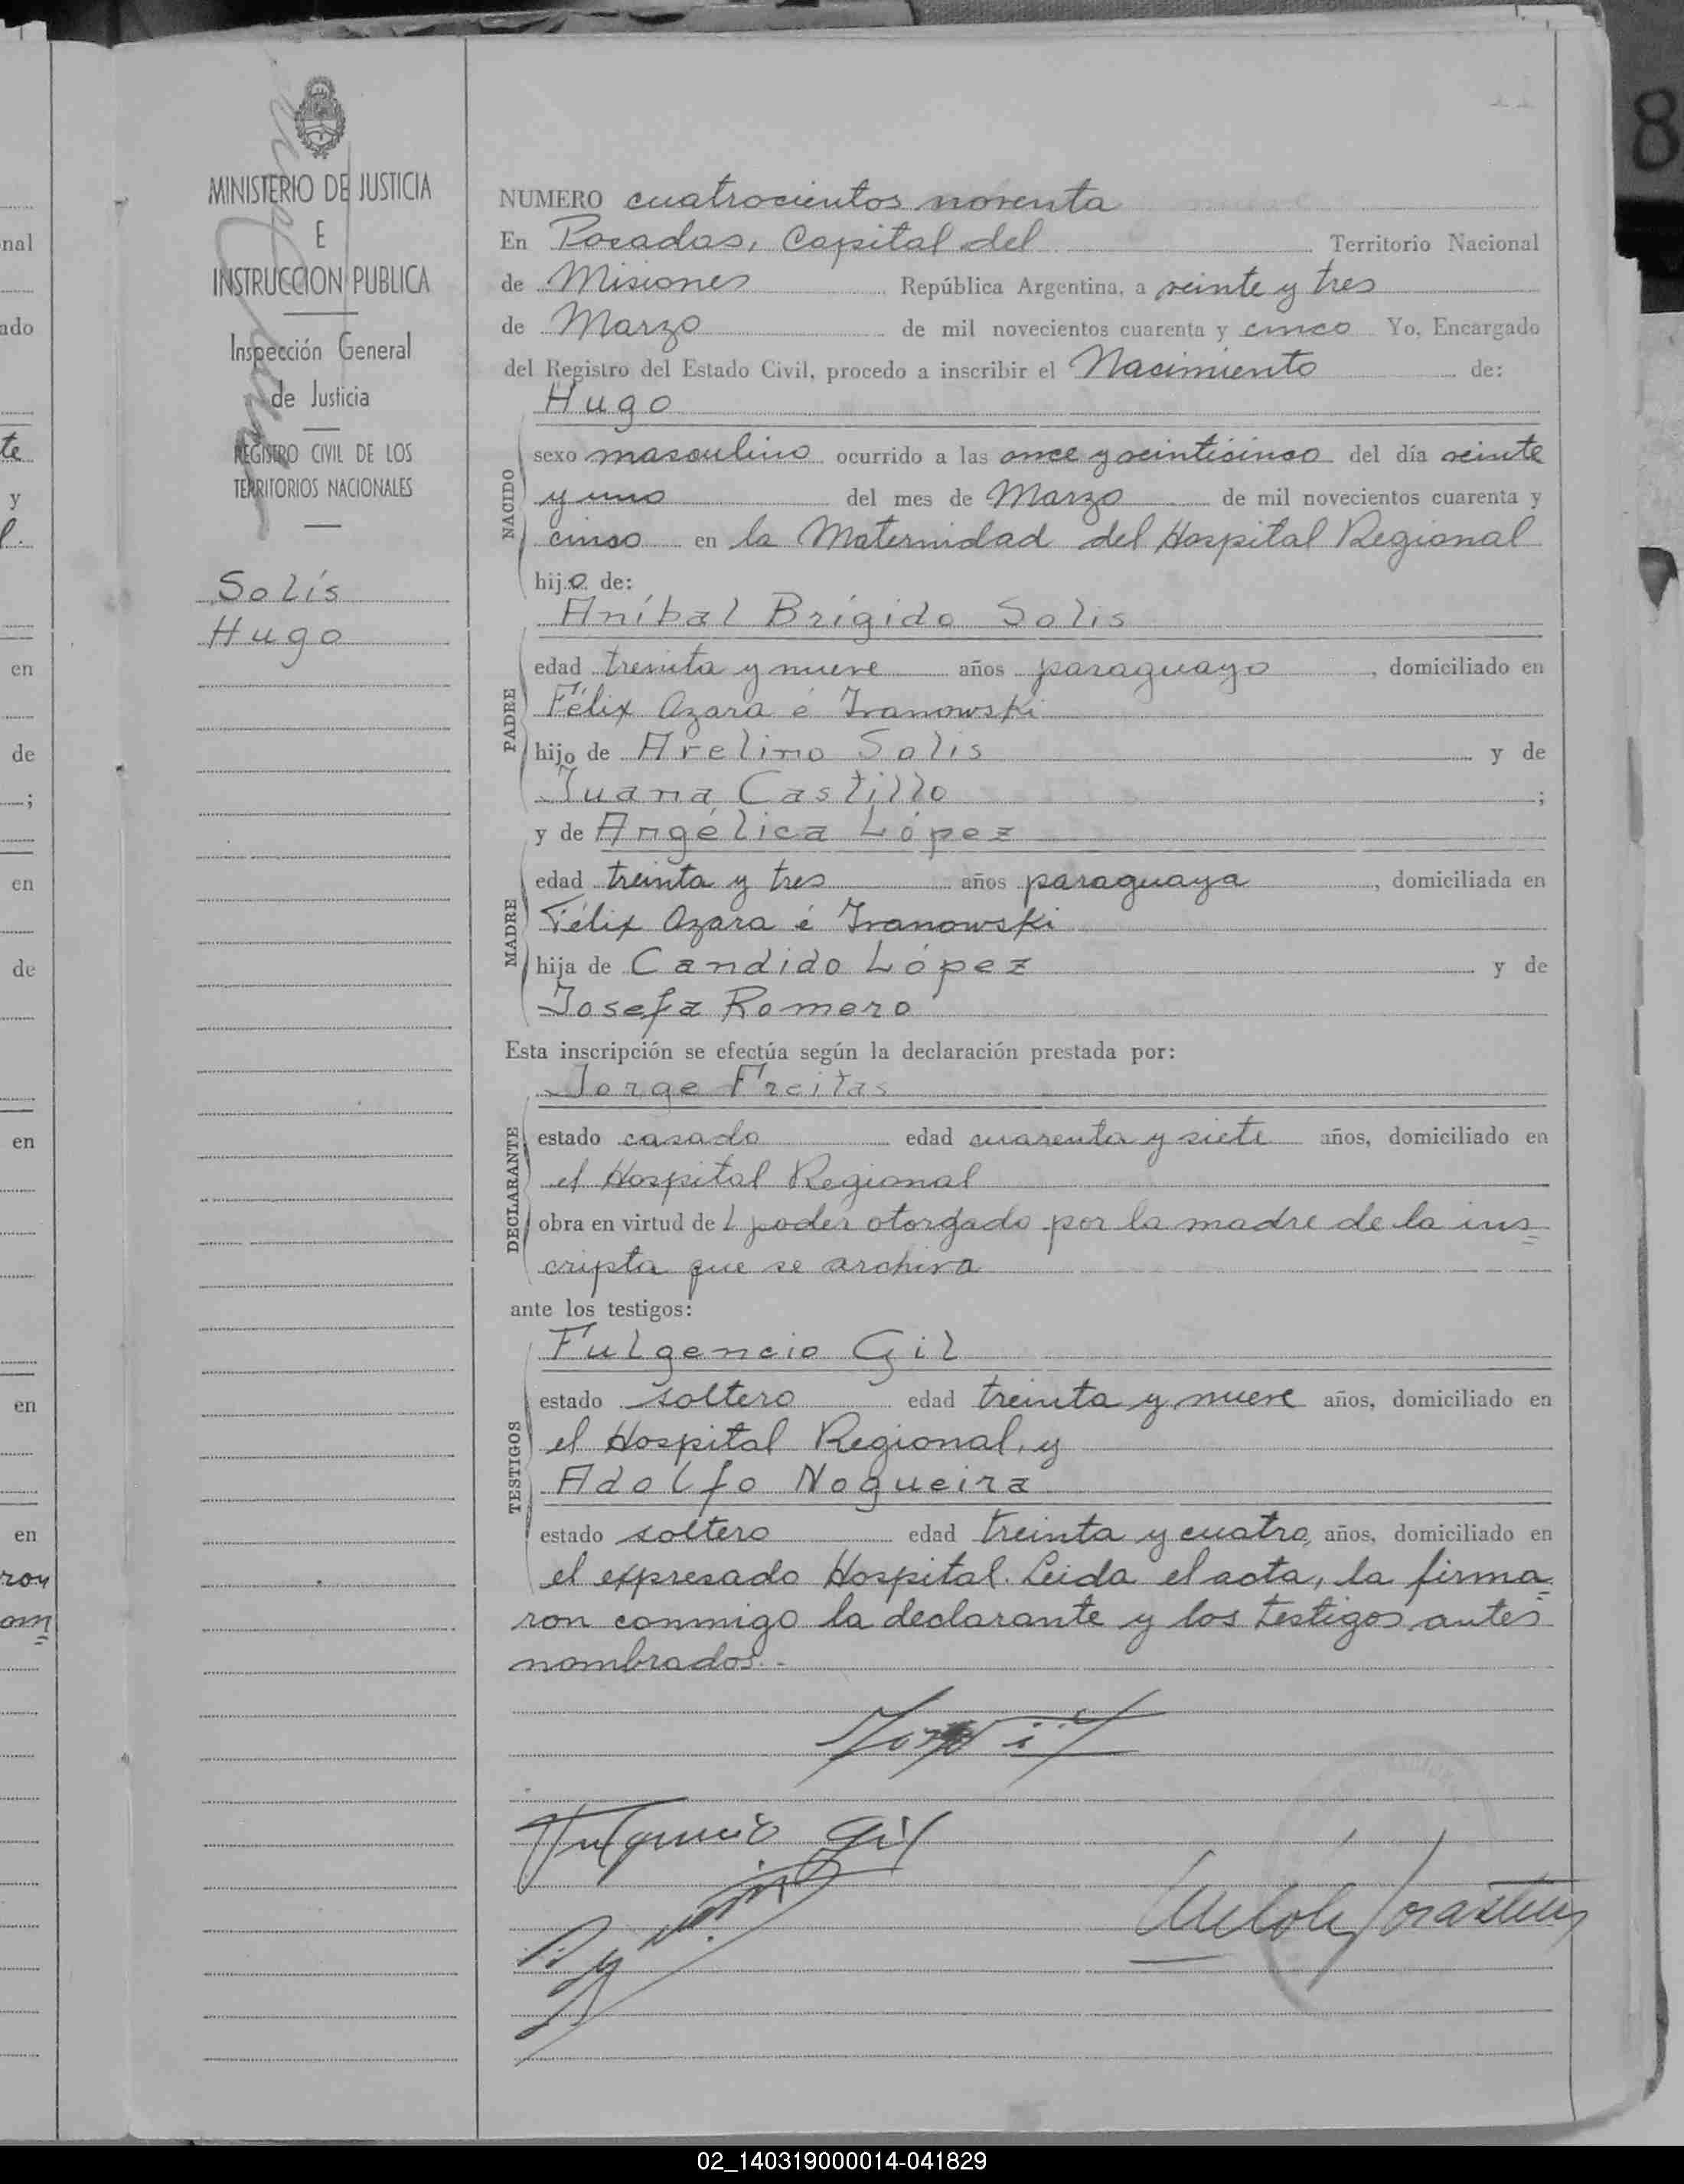 MINISTERIO DE JUSTICIA
E
INSTRUCCION PUBLICA
Inspección General
de Justicia
REGISTRO CIVIL DE LOS
TERRITORIOS NACIONALES
Solís
Hugo
NUMERO cuatrocientos noventa
En Posadas, Capital del Territorio Nacional
de Misiones República Argentina, a veinte y tres
de Marzo de mil novecientos cuarenta y cinco Yo, Encargado
del Registro del Estado Civil, procedo a inscribir el Nacimiento de:
Hugo
NACIDO
sexo masculino ocurrido a las once y veinticinco del día veinte
y uno del mes de Marzo de mil novecientos cuarenta y
cinco en la Maternidad del Hospital Regional
hijo de:
Aníbal Brígido Solis
PADRE
edad treinta y nueve años paraguayo, domiciliado en
Félix Azara é Ivanowski
hijo de Avelino Solis y de
Juana Castillo;
y de Angélica López
MADRE
edad treinta y tres años paraguaya, domiciliada en
Félix Azara é Ivanowski
hija de Candido López y de
Josefa Romero
Esta inscripción se efectúa según la declaración prestada por:
Jorge Freitas
DECLARANTE
estado casado edad cuarenta y siete años, domiciliado en
el Hospital Regional
obra en virtud del poder otorgado por la madre de la ins=
cripta que se archiva
ante los testigos:
Fulgencio Gil
TESTIGOS
estado soltero edad treinta y nueve años, domiciliado en
el Hospital Regional, y
Adolfo Nogueira
estado soltero edad treinta y cuatro, años, domiciliado en
el expresado Hospital. Leida el acta, la firma=
ron conmigo la declarante y los testigos antes
nombrados.-
Fulgencio Gil
nal
ado
te
y
l.
en
de
;
en
de
en
en
en
ron
om=
8
02_140319000014-041829